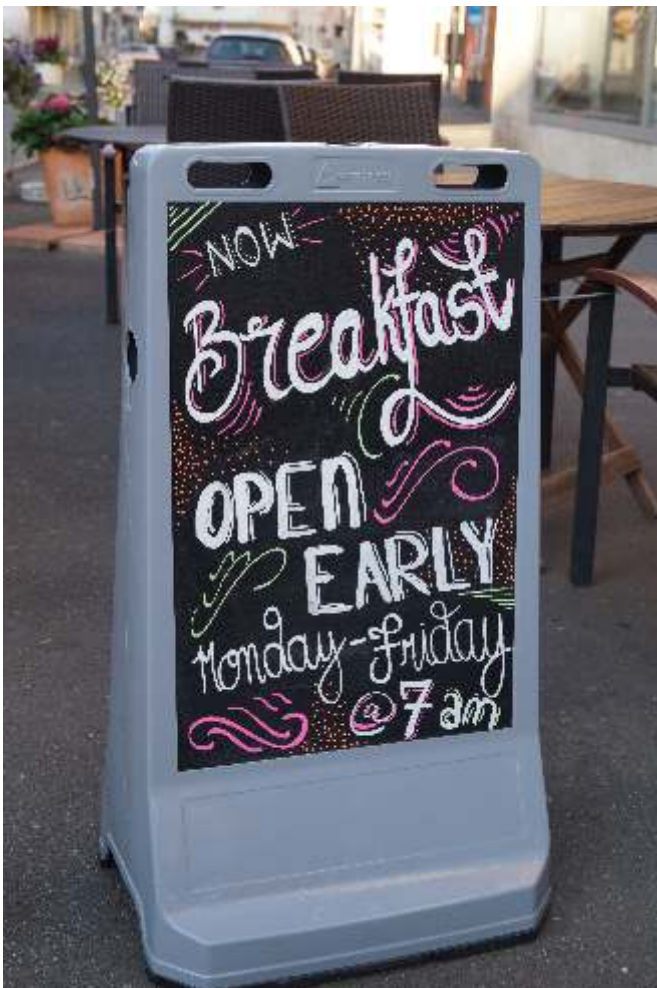 NOW
Breakfast
OPEn
EARLY
Monday-Friday
@ 7 am